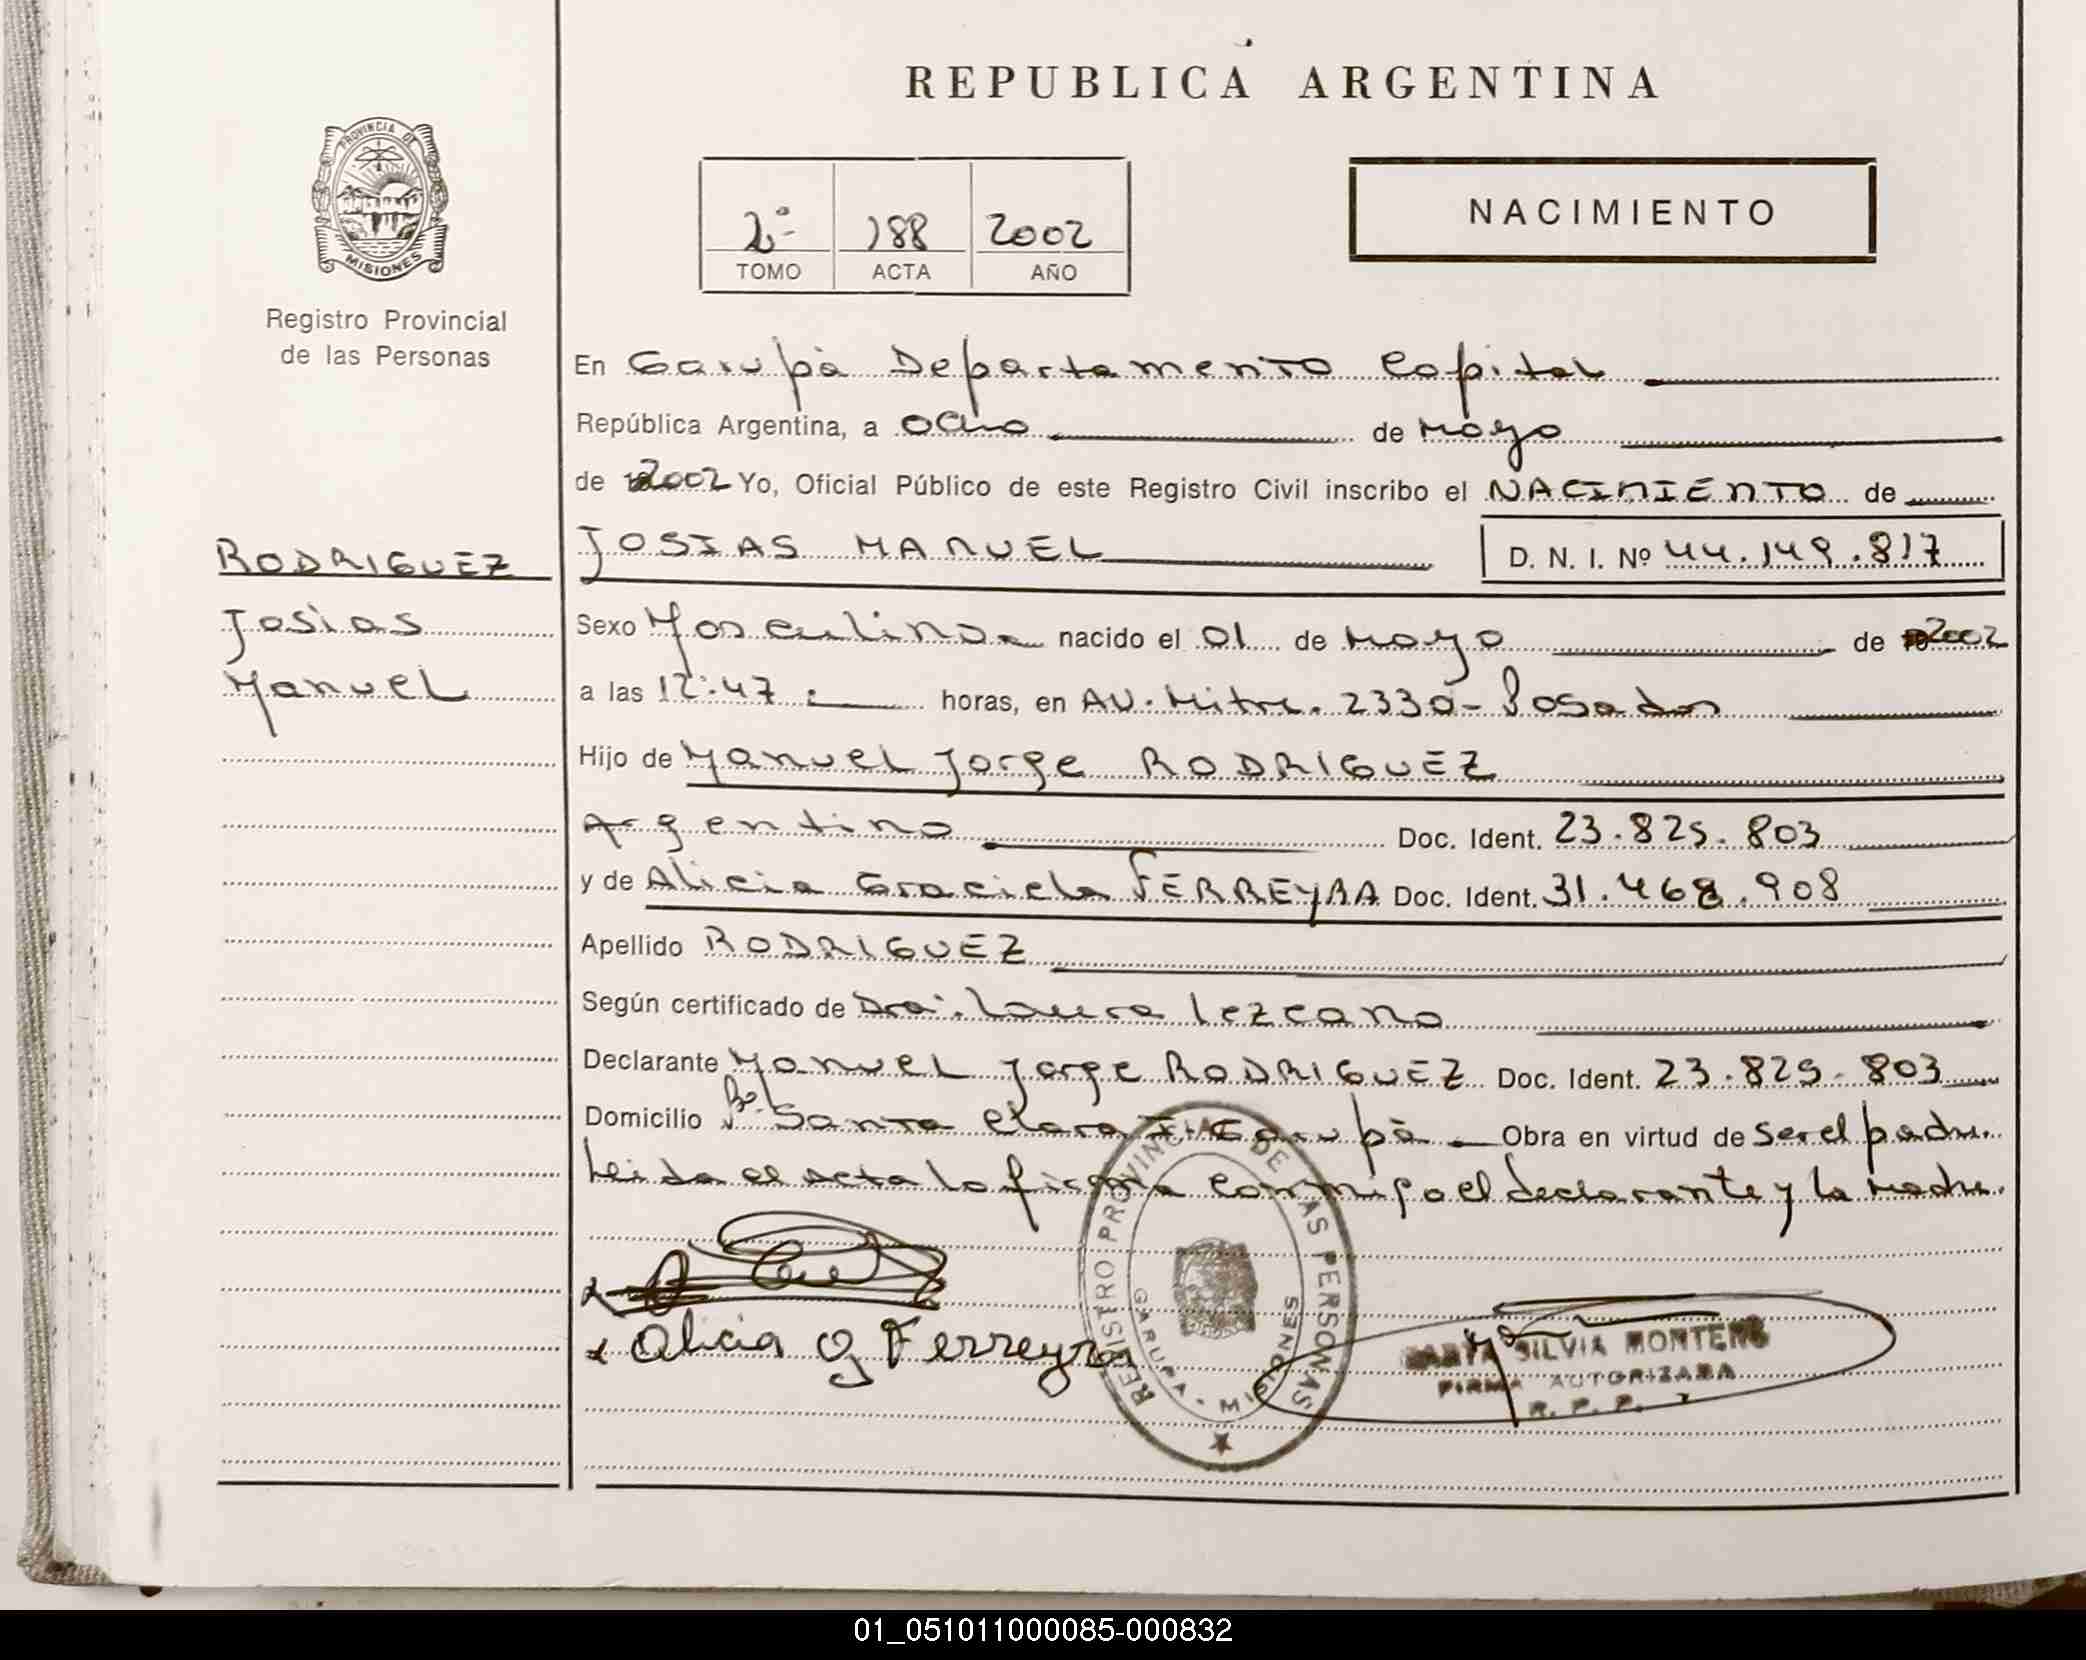 REPUBLICA ARGENTINA
PROVINCIA DE
MISIONES
Registro Provincial
de las Personas
2º 188 2002
TOMO ACTA AÑO
NACIMIENTO
En Garupà Departamento Capital
República Argentina, a ocho de Mayo
de 2002 Yo, Oficial Público de este Registro Civil inscribo el NACIMIENTO de
RODRIGUEZ
Josias
Manuel
JOSIAS MANUEL D. N. I. Nº 44.149.817
Sexo Masculino nacido el 01 de Mayo de 2002
a las 12:47 horas, en AV. Mitre. 2330- Posadas
Hijo de Manuel Jorge RODRIGUEZ
Argentino Doc. Ident. 23.825.803
y de Alicia Graciela FERREYRA Doc. Ident. 31.468.908
Apellido RODRIGUEZ
Según certificado de Dra. Laura Lezcano
Declarante Manuel Jorge RODRIGUEZ Doc. Ident. 23.825.803
Domicilio Bº. Santa Clara I- Garupà Obra en virtud de ser el padre.
Leida el acta la firma conmigo el declarante y la Madre.
Alicia G Ferreyra
REGISTRO PROVINCIAL DE LAS PERSONAS
GARUPA - MISIONES
SILVIA MONTERO
FIRMA AUTORIZADA
R. P. P.
01_051011000085-000832